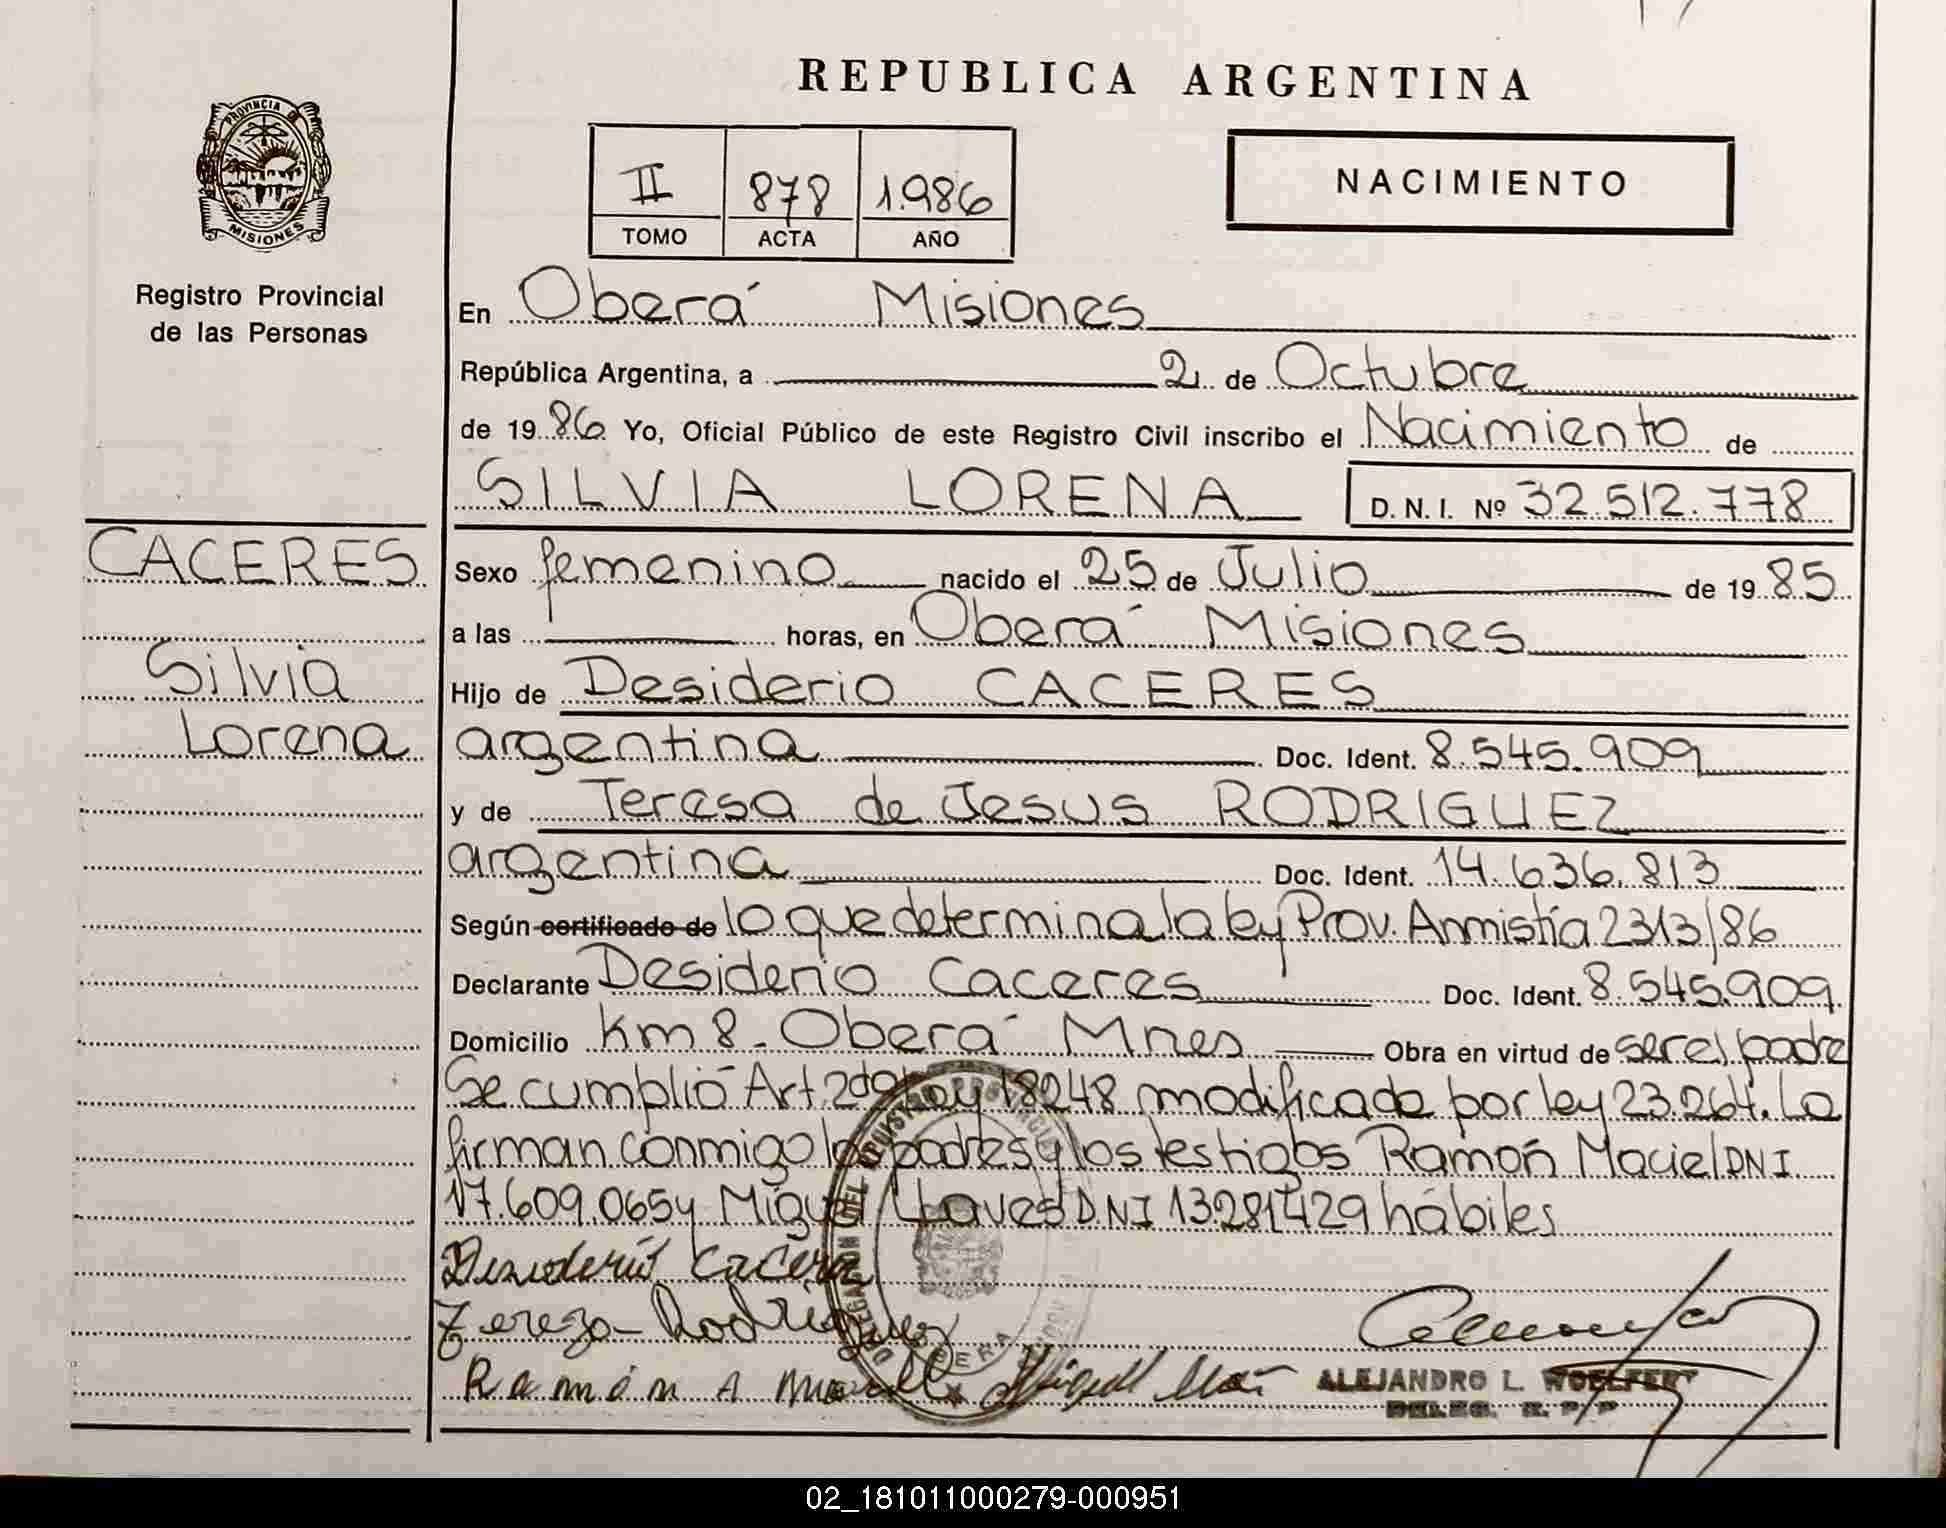 REPUBLICA ARGENTINA
PROVINCIA DE
MISIONES
Registro Provincial
de las Personas
II 878 1.986
TOMO ACTA AÑO
NACIMIENTO
En Oberá Misiones
República Argentina, a 2 de Octubre
de 1986 Yo, Oficial Público de este Registro Civil inscribo el Nacimiento de
SILVIA LORENA D. N. I. Nº 32.512.778
CACERES
Silvia
Lorena
Sexo femenino nacido el 25 de Julio de 1985
a las horas, en Oberá Misiones
Hijo de Desiderio CACERES
argentina Doc. Ident. 8.545.909
y de Teresa de Jesus RODRIGUEZ
argentina Doc. Ident. 14.636.813
Según certificado de lo que determina la ley Prov. Anmistía 2313/86
Declarante Desiderio Caceres Doc. Ident. 8.545.909
Domicilio Km 8. Oberá Mnes Obra en virtud de ser el padre
Se cumplió Art. 2do ley 18248 modificada por ley 23.264. La
firman conmigo los padres y los testigos Ramón Maciel DNI
17.609.065 y Miguel DNI 13.281.429 hábiles
Desiderio Cacere
Tereza Rodriguez
Ramón A
ALEJANDRO L. WOELFERT
DELEG. R. P. P
02_181011000279-000951